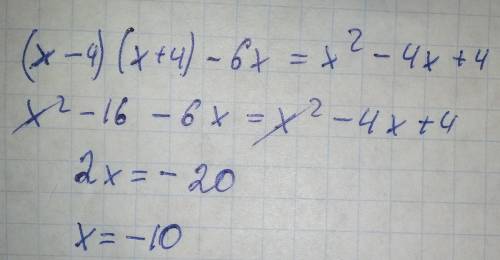 (x-4)(x+4)-6x = x² - 4x + 4
x² - 16 - 6x = x² - 4x + 4
2x = - 20
x = - 10